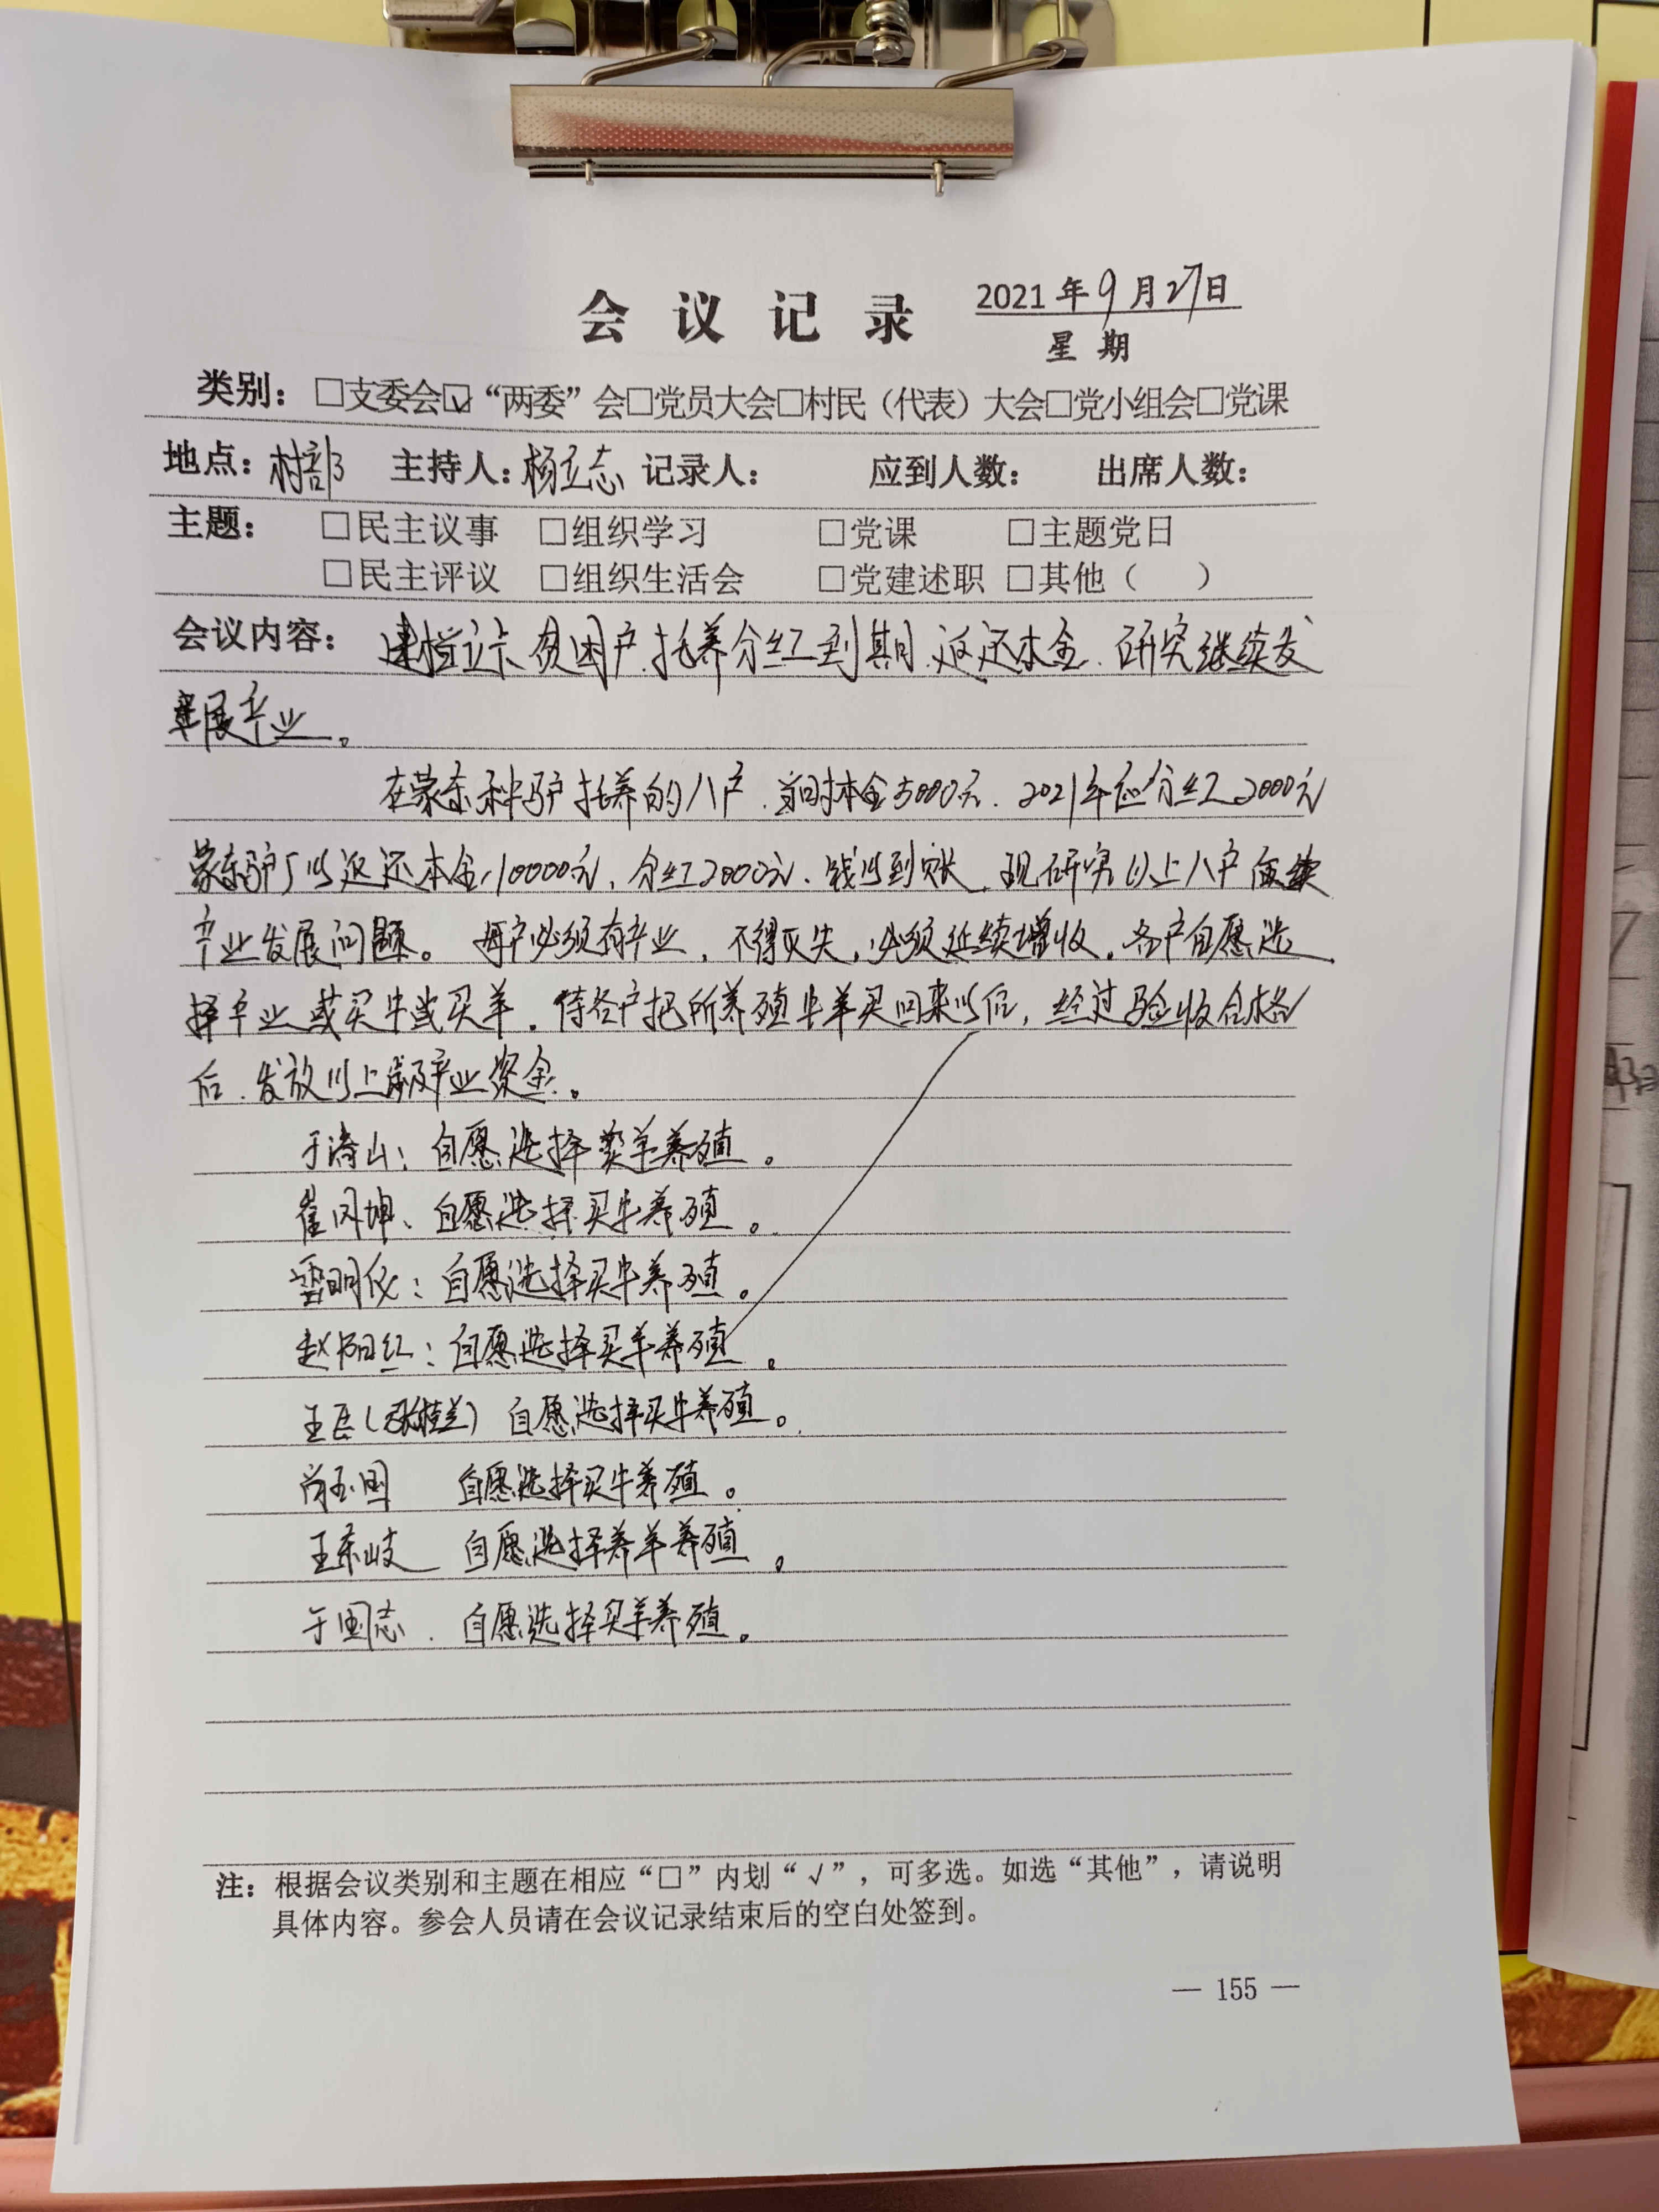 会议记录 2021年9月27日
星期
类别：□支委会☑“两委”会□党员大会□村民（代表）大会□党小组会□党课
地点：村部 主持人：杨立志 记录人： 应到人数： 出席人数：
主题： □民主议事 □组织学习 □党课 □主题党日
□民主评议 □组织生活会 □党建述职 □其他（ ）
会议内容：建档立卡贫困户托养分红到期、返还本金、研究继续发
展产业。
在蒙东种驴托养的八户、本金5000元、2021年应分红2000元
蒙东驴厂以返还本金10000元，分红2000元、钱以到账，现研究以上八户
产业发展问题。每户必须有产业，不得灭失，必须延续增收。各户自愿选
择产业或买牛或买羊，待各户把所养殖牛羊买回来以后，经过验收合格
后、发放以上产业资金。
于涛山：自愿选择买羊养殖。
崔凤坤、自愿选择买牛养殖。
雷明仪：自愿选择买牛养殖。
赵阳红：自愿选择买羊养殖。
王臣（张桂兰）自愿选择买牛养殖。
尚玉国 自愿选择买牛养殖。
王东岐 自愿选择养羊养殖。
于国志．自愿选择买羊养殖。
注：根据会议类别和主题在相应“□”内划“√”，可多选。如选“其他”，请说明
具体内容。参会人员请在会议记录结束后的空白处签到。
— 155 —